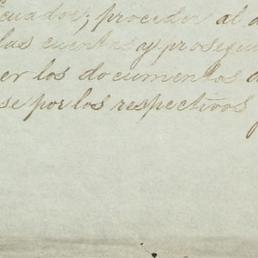 cuador; proceder al
las cuentas y prosegui
er los documentos d
se por los respectivos